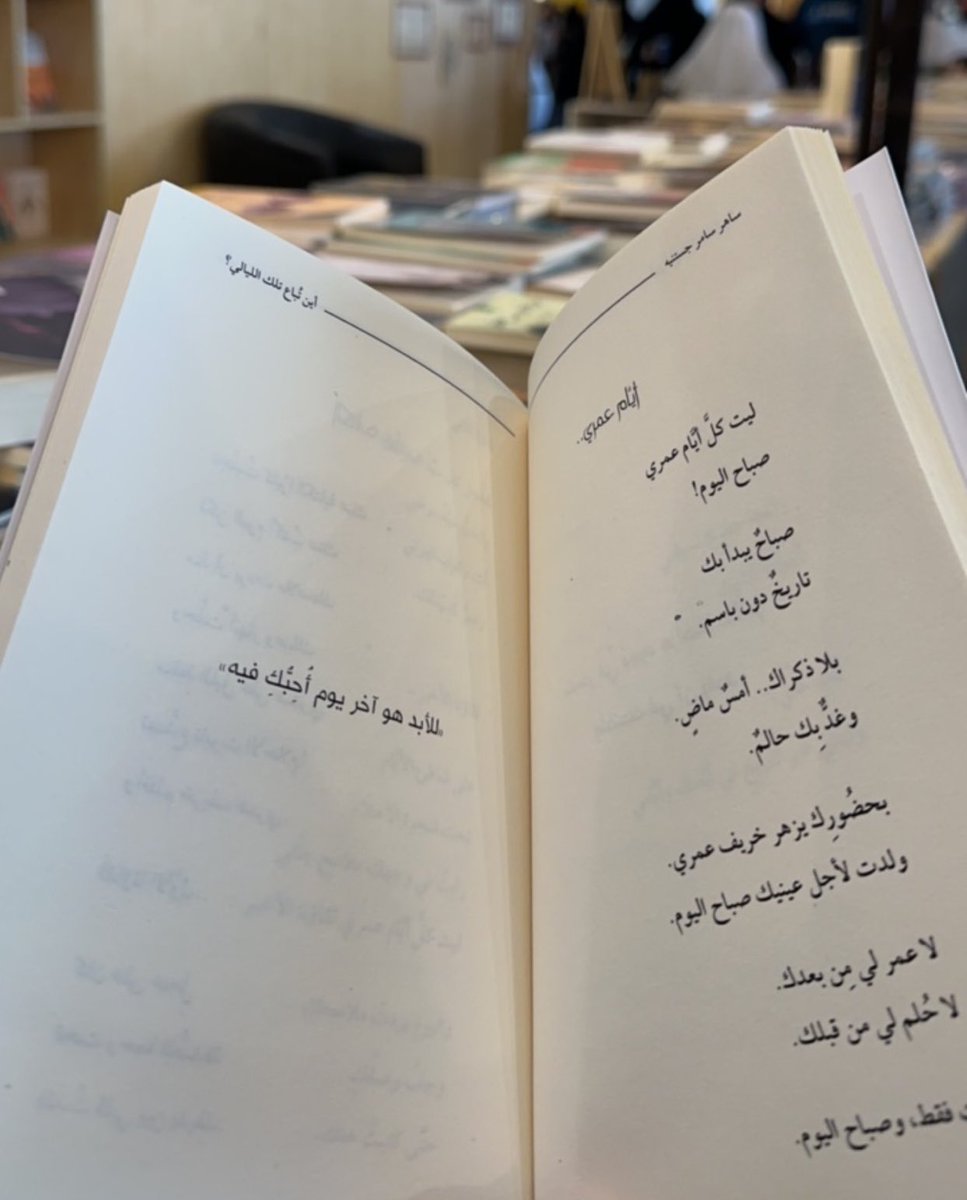 ساهر سامر جستنيه
أيّام عمري..
ليت كلَّ أيَّام عمري
صباح اليوم!
صباحٌ يبدأ بك
تاريخٌ دون باسم.
بلا ذكراك.. أمسٌ ماضٍ.
وغدٌ بِك حالمٌ.
بحضُورِك يزهر خريف عمري.
ولدت لأجلِ عينيك صباح اليوم.
لا عمر لي مِن بعدك.
لا حُلم لي من قبلك.
فقط، وصباح اليوم.
أين تُباع تلك الليالي؟
«للأبد هو آخر يوم أُحِبُّكِ فيه»